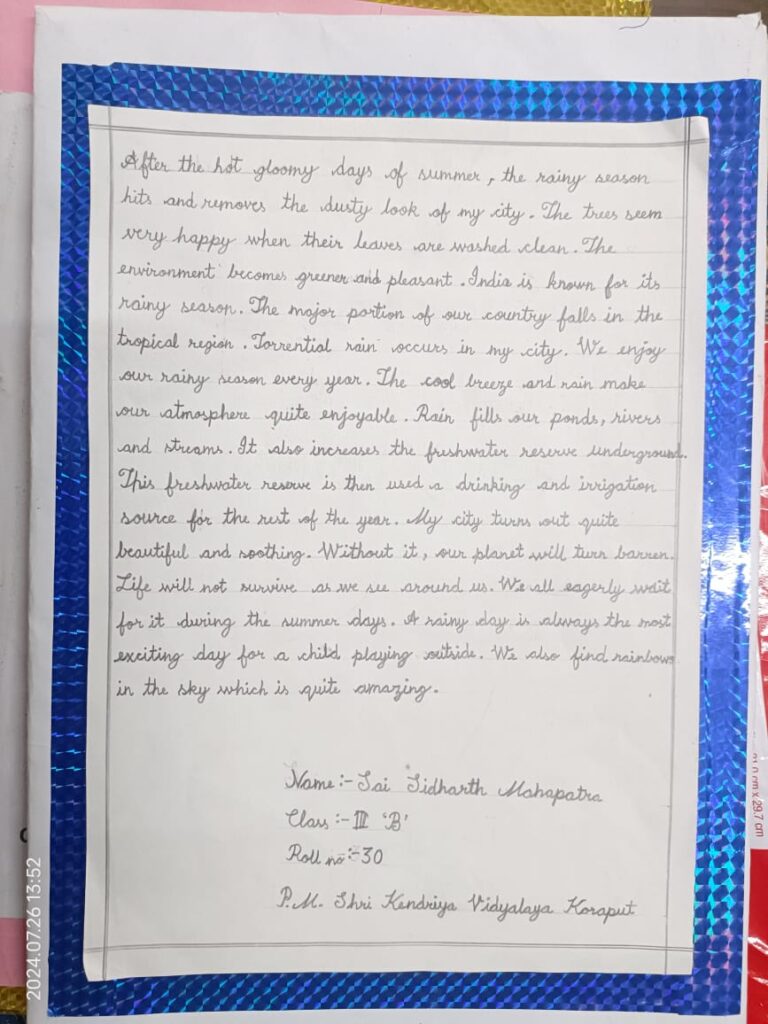 After the hot gloomy days of summer, the rainy season
hits and removes the dusty look of my city. The trees seem
very happy when their leaves are washed clean. The
environment becomes greener and pleasant. India is known for its
rainy season. The major portion of our country falls in the
tropical region. Torrential rain occurs in my city. We enjoy
our rainy season every year. The cool breeze and rain make
our atmosphere quite enjoyable. Rain fills our ponds, rivers
and streams. It also increases the freshwater reserve underground.
This freshwater reserve is then used a drinking and irrigation
source for the rest of the year. My city turns out quite
beautiful and soothing. Without it, our planet will turn barren.
Life will not survive as we see around us. We all eagerly wait
for it during the summer days. A rainy day is always the most
exciting day for a child playing outside. We also find rainbows
in the sky which is quite amazing.
Name:- Sai Sidharth Mahapatra
Class:- III 'B'
Roll no:-30
P.M. Shri Kendriya Vidyalaya Koraput
2024.07.26 13:52
cm x 29.7 cm